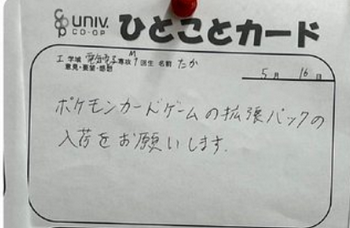 UNIV. CO-OP ひとことカード
工 学域 電気電子 専攻 M1 回生 名前 たか
意見・要望・感想
5月 16日
ポケモンカードゲームの拡張パックの
入荷をお願いします.